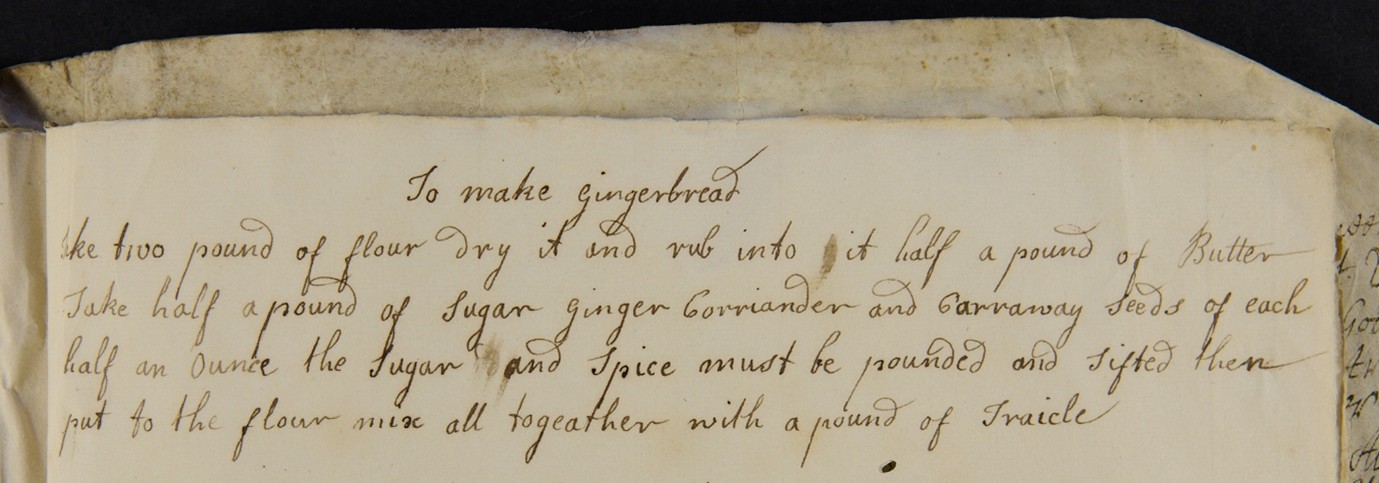 To make gingerbread
ake two pound of flour dry it and rub into it half a pound of Butter
Take half a pound of Sugar ginger Corriander and Carraway Seeds of each
half an Ounce the Sugar and Spice must be pounded and Sifted then
put to the flour mix all togeather with a pound of Traicle